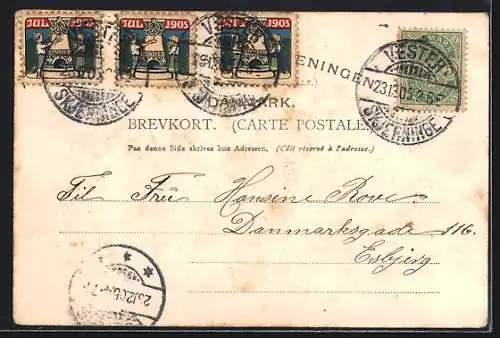 JUL 1905 JUL 1905 JUL 1905
VESTER
23.12.05
SKJERNINGE
DANMARK.
BREVKORT. (CARTE POSTALE)
Paa denne Side skrives kun Adressen. (Côté réservé à l'adresse.)
Til Frü Hansine Bove.
Danmarksgade 116.
Esbjerg